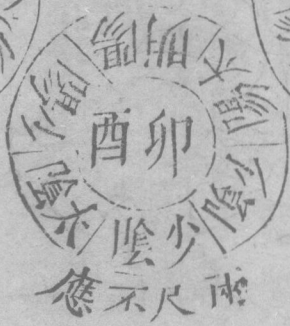 卯酉
陽明
太陽
厥陰
少陰
太陰
少陽
兩尺不應